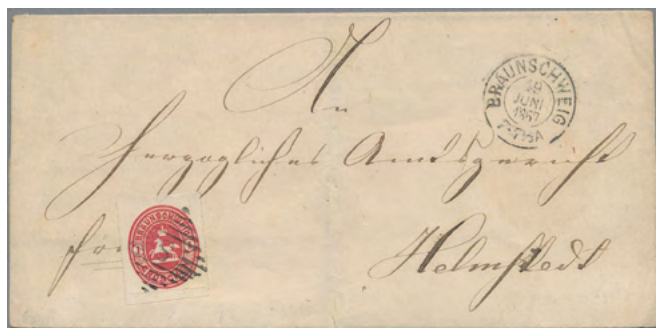 An
BRAUNSCHWEIG
19
JUNI
1867
Herzogliches Amtsgericht
BRAUNSCHWEIG
Helmstedt